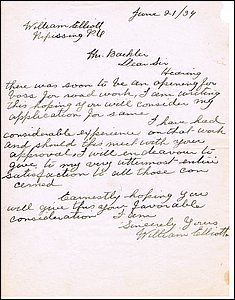 June 21/34
William Elliott
Nipissing P.O.
Mr. Backler
Dear Sir
Hearing
there was soon to be an opening for
boss for road work, I am writing
this hoping you will consider my
application for same.
I have had
considerable experience on that work
and should this meet with your
approval, I will endeavour to
give to my very uttermost entire
satisfaction to all those con
cerned.
Earnestly hoping you
will give this your favorable
consideration I am
Sincerely Yours
William Elliott